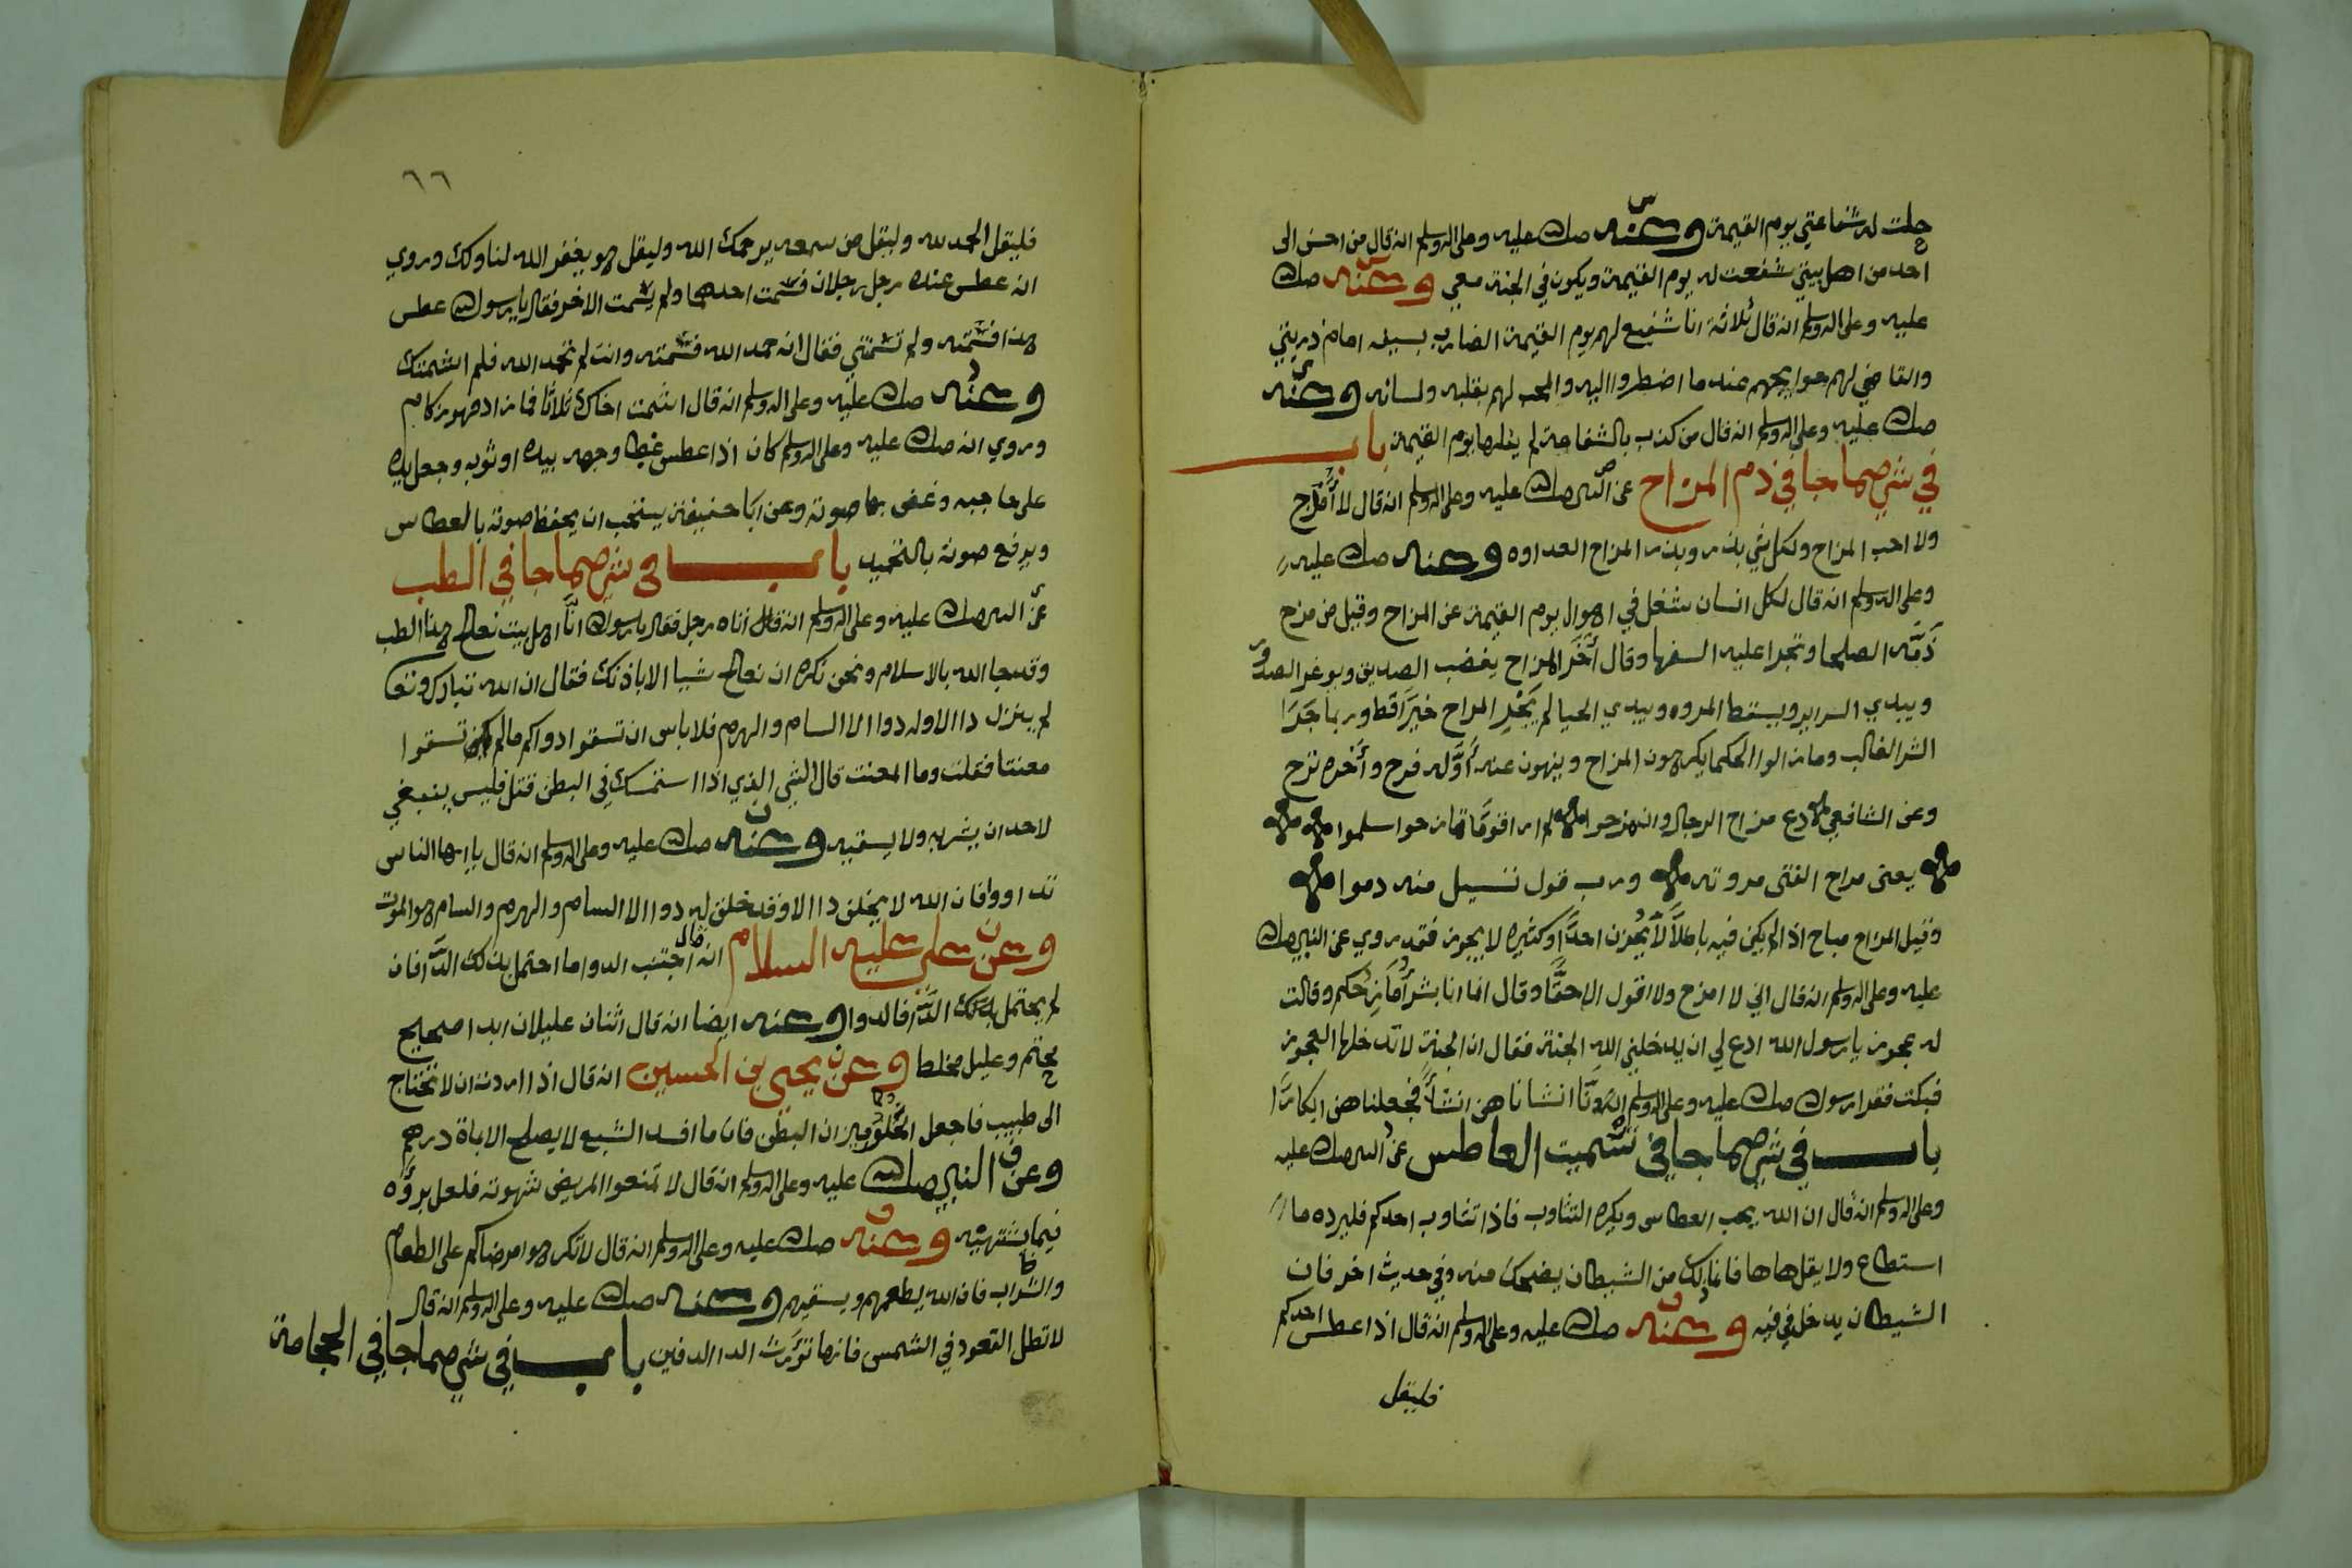 حلت له شفاعتي يوم القيمة وعنه صلى الله عليه وعلى اله وسلم انه قال من احسن الى
احد من اهل بيتي شفعت له يوم القيمة ويكون في الجنة معي وعنه صلى الله
عليه وعلى اله وسلم انه قال ثلاثة انا شفيع لهم يوم القيمة الضارب بسيفه امام ذريتي
والقاضي لهم حوايجهم عند ما اضطروا اليه والمحب لهم بقلبه ولسانه وعنه
صلى الله عليه وعلى اله وسلم انه قال من كذب بالشفاعة لم ينلها يوم القيمة باب
في شي مما جا في ذم المزاح عن النبي صلى الله عليه وعلى اله وسلم انه قال لا أمزح
ولا احب المزاح ولكل شي بذر وبذر المزاح العداوه وعنه صلى الله عليه
وعلى اله وسلم انه قال لكل انسان شغل في اهوال يوم القيمة عن المزاح وقيل من مزح
ذَمَّه الصلحا وتجرا عليه السفها وقال أخَر المزاح يغضب الصديق ويوغر الصدور
ويبدي السراير ويسقط المروه ويبدي الحيا لم يَجْرِ المزاح خَيرًا قط وربما جَرَا
الشر الغالب وما زالوا الحكما يكرهون المزاح وينهون عنه أوَّله فرح وأخره ترح
وعن الشافعي دع مزاح الرجال وان مزحوا لم ار قومًا تمازحوا سلموا
يعتى مزاح الفتى مروته ورب قول تسيل منه دموا
وقيل المزاح مباح اذا لم يكن فيه باطلاً لا يُحزن احدًا وكثيره لا يجوز فقد روي عن النبي صلى الله
عليه وعلى اله وسلم انه قال اني لا امزح ولا اقول الا حقًّا وقال انما انا بشرٌ أمازحُكم وقالت
له عجوز يا رسول الله ادع لي ان يدخلني الله الجنة فقال ان الجنة لا تدخلها العجوز
فبكت فقرا رسول الله صلى الله عليه وعلى اله وسلم إنَّا انشاناهن انشاءً فجعلناهن ابكارًا
باب في شي مما جا في تشميت العاطس عن النبي صلى الله عليه
وعلى اله وسلم انه قال ان الله يحب العطاس ويكره التثاوب فاذا تثاوب احدكم فليرده ما
استطاع ولا يقل هاها فانما ذلك من الشيطان يضحك منه وفي حديث اخر فان
الشيطان يدخل في فيه وعنه صلى الله عليه وعلى اله وسلم انه قال اذا عطس احدكم
فليقل
٦٦
فليقل الحمد لله وليقل من سمعه يرحمك الله وليقل هو يغفر الله لنا ولك وروي
انه عطس عنده رجل رجلان فشمت احدهما ولم يشمت الاخر فقال يا رسول الله عطس
هذا فشمته ولم تشمتني فقال انه حمد الله فشمته وانت لم تحمد الله فلم اشمتك
وعنه صلى الله عليه وعلى اله وسلم انه قال اشمت اخاك ثلاثًا فما زاد فهو زكام
وروي انه صلى الله عليه وعلى اله وسلم كان اذا عطس غطى وجهه بيده او ثوبه وجعل يده
على حاجبه وغض بها صوته وعن ابا حنيفة يستحب ان يخفظ صوته بالعطاس
ويرفع صوته بالتحميد باب في شي مما جا في الطب
عن النبي صلى الله عليه وعلى اله وسلم انه قال اتاه رجل فقال يا رسول الله انَّا اهل بيت نعالج هذا الطب
وقد جا الله بالاسلام ونحن نكره ان نعالج شييا الا باذنك فقال ان الله تبارك وتعالى
لم ينزل داا الا وله دوا الا السام والهرم فلا باس ان تسقوا دواكم ما لم تسقوا
معنتا فقلت وما المعنت قال الشي الذي اذا استمسك في البطن قتل فليس ينبغي
لاحد ان يشربه ولا يسقيه وعنه صلى الله عليه وعلى اله وسلم انه قال يا ايها الناس
تداووا فان الله لا يخلق داا الا وقد خلق له دوا الا السام والهرم والسام هو الموت
وعن علي عليه السلام انه قال اجتنب الدوا ما احتمل بدنك الدَّا فان
لم يحتمل بدنك الدَّا فالدوا وعنه ايضا انه قال اثنان عليلان ابدا صحيح
محتم وعليل مخلط وعن يحيى بن الحسين انه قال اذا اردت ان لا تحتاج
الى طبيب فاجعل الخُلوَّ ميزان البطن فان ما افسد الشبع لا يصلح الا باة درهم
وعن النبي صلى الله عليه وعلى اله وسلم انه قال لا تمنعوا المريض شهوته فلعل بروَّه
فيما يشتهيه وعنه صلى الله عليه وعلى اله وسلم انه قال لا تكرهوا مرضاكم على الطعام
والشراب فان الله يطعمهم ويسقيهم وعنه صلى الله عليه وعلى اله وسلم انه قال
لا تطل القعود في الشمس فانها تورَّث الدا الدفين باب في شي مما جا في الحجامة